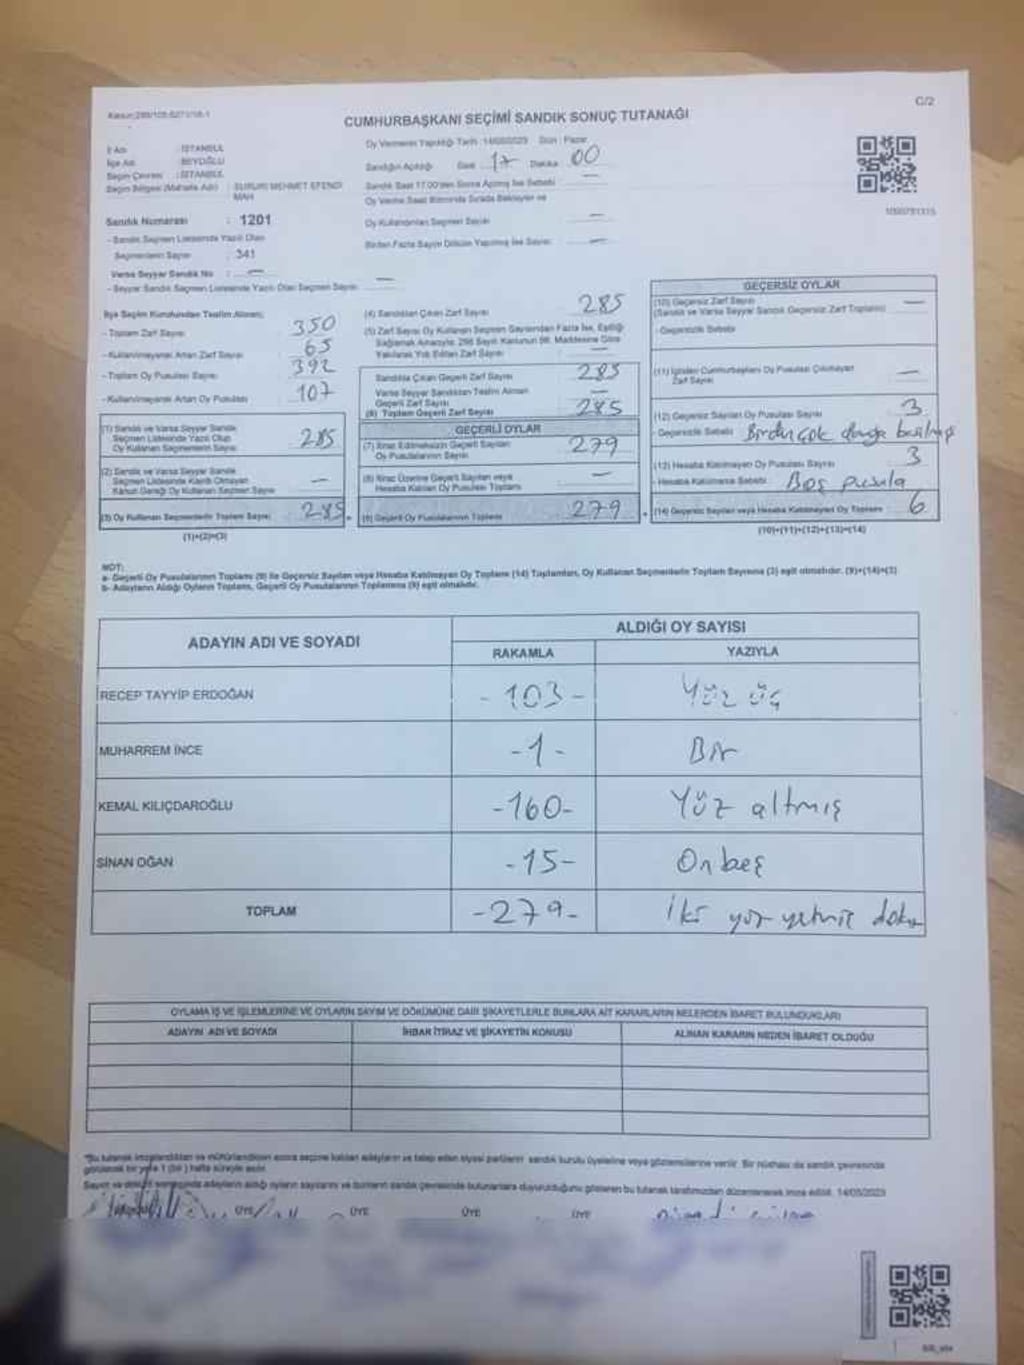 C/2
CUMHURBAŞKANI SEÇİMİ SANDIK SONUÇ TUTANAĞI
İl Adı : İSTANBUL
İlçe Adı : BEYOĞLU
Seçim Çevresi : İSTANBUL
Seçim Bölgesi (Mahalle Adı) : SURURİ MEHMET EFENDİ MAH
Sandık Numarası : 1201
- Sandık Seçmen Listesinde Yazılı Olan
Seçmenlerin Sayısı : 341
Varsa Seyyar Sandık No : —
- Seyyar Sandık Seçmen Listesinde Yazılı Olan Seçmen Sayısı —
Oy Vermenin Yapıldığı Tarih : 14/05/2023 Gün : Pazar
Sandığın Açıldığı Saat 17 Dakika 00
Sandık Saat 17.00'den Sonra Açılmış İse Sebebi —
Oy Verme Saati Bitiminde Sırada Bekleyen ve
Oy Kullandırılan Seçmen Sayısı —
Birden Fazla Sayım Döküm Yapılmış İse Sayısı —
İlçe Seçim Kurulundan Teslim Alınan;
- Toplam Zarf Sayısı 350
- Kullanılmayarak Artan Zarf Sayısı 65
- Toplam Oy Pusulası Sayısı 392
- Kullanılmayarak Artan Oy Pusulası 107
(1) Sandık ve Varsa Seyyar Sandık
Seçmen Listesinde Yazılı Olup
Oy Kullanan Seçmenlerin Sayısı 285
(2) Sandık ve Varsa Seyyar Sandık
Seçmen Listesinde Kayıtlı Olmayan
Kanun Gereği Oy Kullanan Seçmen Sayısı —
(3) Oy Kullanan Seçmenlerin Toplam Sayısı 285
(1)+(2)=(3)
(4) Sandıktan Çıkan Zarf Sayısı 285
(5) Zarf Sayısı Oy Kullanan Seçmen Sayısından Fazla İse, Eşitliği
Sağlamak Amacıyla, 298 Sayılı Kanunun 98. Maddesine Göre
Yakılarak Yok Edilen Zarf Sayısı —
Sandıkta Çıkan Geçerli Zarf Sayısı 285
Varsa Seyyar Sandıktan Teslim Alınan
Geçerli Zarf Sayısı —
(6) Toplam Geçerli Zarf Sayısı 285
GEÇERLİ OYLAR
(7) İtiraz Edilmeksizin Geçerli Sayılan
Oy Pusulalarının Sayısı 279
(8) İtiraz Üzerine Geçerli Sayılan veya
Hesaba Katılan Oy Pusulası Toplamı —
(9) Geçerli Oy Pusulalarının Toplamı 279
GEÇERSİZ OYLAR
(10) Geçersiz Zarf Sayısı —
(Sandık ve Varsa Seyyar Sandık Geçersiz Zarf Toplamı)
- Geçersizlik Sebebi
(11) İçinden Cumhurbaşkanı Oy Pusulası Çıkmayan
Zarf Sayısı —
(12) Geçersiz Sayılan Oy Pusulası Sayısı 3
- Geçersizlik Sebebi Birden çok damga basılmış
(13) Hesaba Katılmayan Oy Pusulası Sayısı 3
- Hesaba Katılmama Sebebi Boş pusula
(14) Geçersiz Sayılan veya Hesaba Katılmayan Oy Toplamı 6
(10)+(11)+(12)+(13)=(14)
NOT:
a- Geçerli Oy Pusulalarının Toplamı (9) ile Geçersiz Sayılan veya Hesaba Katılmayan Oy Toplamı (14) Toplamları, Oy Kullanan Seçmenlerin Toplam Sayısına (3) eşit olmalıdır. (9)+(14)=(3)
b- Adayların Aldığı Oyların Toplamı, Geçerli Oy Pusulalarının Toplamına (9) eşit olmalıdır.
ADAYIN ADI VE SOYADI ALDIĞI OY SAYISI
RAKAMLA YAZIYLA
RECEP TAYYİP ERDOĞAN - 103 - Yüz üç
MUHARREM İNCE - 1 - Bir
KEMAL KILIÇDAROĞLU - 160 - Yüz altmış
SİNAN OĞAN - 15 - Onbeş
TOPLAM - 279 - İki yüz yetmiş doku
OYLAMA İŞ VE İŞLEMLERİNE VE OYLARIN SAYIM VE DÖKÜMÜNE DAİR ŞİKAYETLERLE BUNLARA AİT KARARLARIN NELERDEN İBARET BULUNDUKLARI
ADAYIN ADI VE SOYADI İHBAR İTİRAZ VE ŞİKAYETİN KONUSU ALINAN KARARIN NEDEN İBARET OLDUĞU
*Bu tutanak imzalandıktan ve mühürlendikten sonra seçime katılan adayların ve talep eden siyasi partilerin sandık kurulu üyelerine veya gözlemcilerine verilir. Bir nüshası da sandık çevresinde
görülecek bir yere 1 (bir) hafta süreyle asılır.
Sayım ve döküm sonucunda adayların aldığı oyların sayılarını ve bunların sandık çevresinde bulunanlara duyurulduğunu gösteren bu tutanak tarafımızdan düzenlenerek imza edildi. 14/05/2023
ÜYE ÜYE ÜYE ÜYE